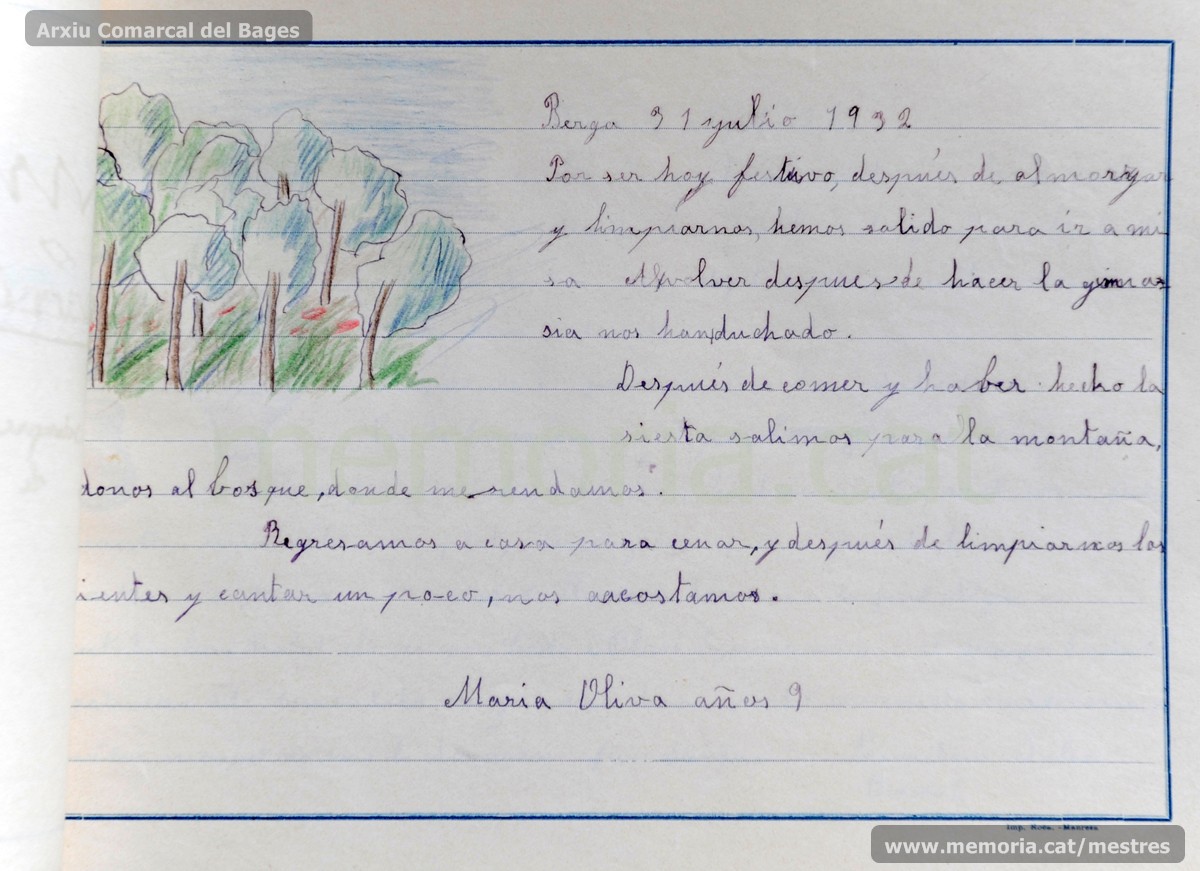 Arxiu Comarcal del Bages
Berga 31 julio 1932
Por ser hoy festivo, después de almorzar
y limpiarnos, hemos salido para ir a mi
sa Al volver despues de hacer la gimna
sia nos han duchado.
Después de comer y haber hecho la
siesta salimos para la montaña,
donos al bosque, donde merendamos.
Regresamos a casa para cenar, y después de limpiarnos los
ientes y cantar un poco, nos aacostamos.
Maria Oliva años 9
memoria.cat
Imp. Roca. - Manresa
www.memoria.cat/mestres